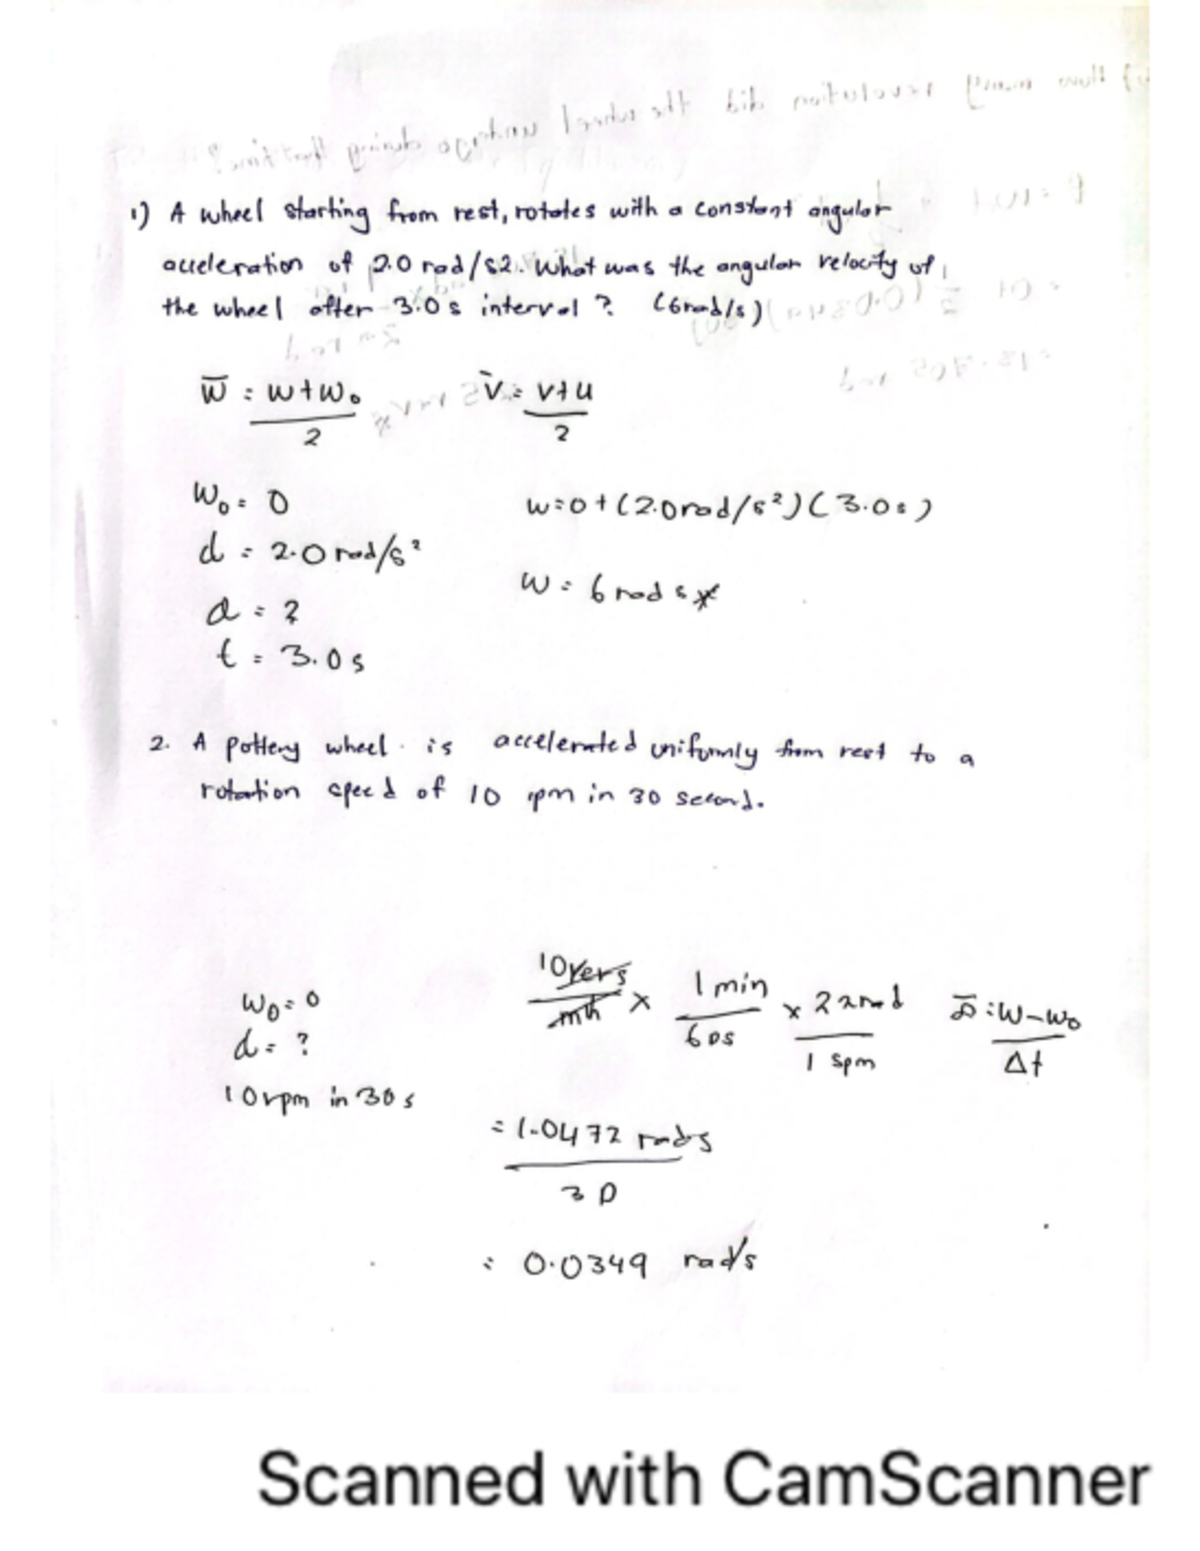 1) A wheel starting from rest, rotates with a constant angular
acceleration of 2.0 rad/s2. What was the angular velocity of
the wheel after 3.0 s interval ? (6rad/s)
w̄ = w+w₀ / 2    v̄ = v+u / 2
w₀ = 0    w=0+(2.0rad/s²)(3.0s)
d = 2.0 rad/s²
w = 6 rad s
a = ?
t = 3.0 s
2. A pottery wheel is accelerated uniformly from rest to a
rotation speed of 10 rpm in 30 second.
10 / × 1 min / 60s × 2π rad / 1 : w-w₀ / Δt
w₀ = 0
d = ?
10rpm in 30 s
= 1.0472 rads / 30
= 0.0349 rad/s
Scanned with CamScanner